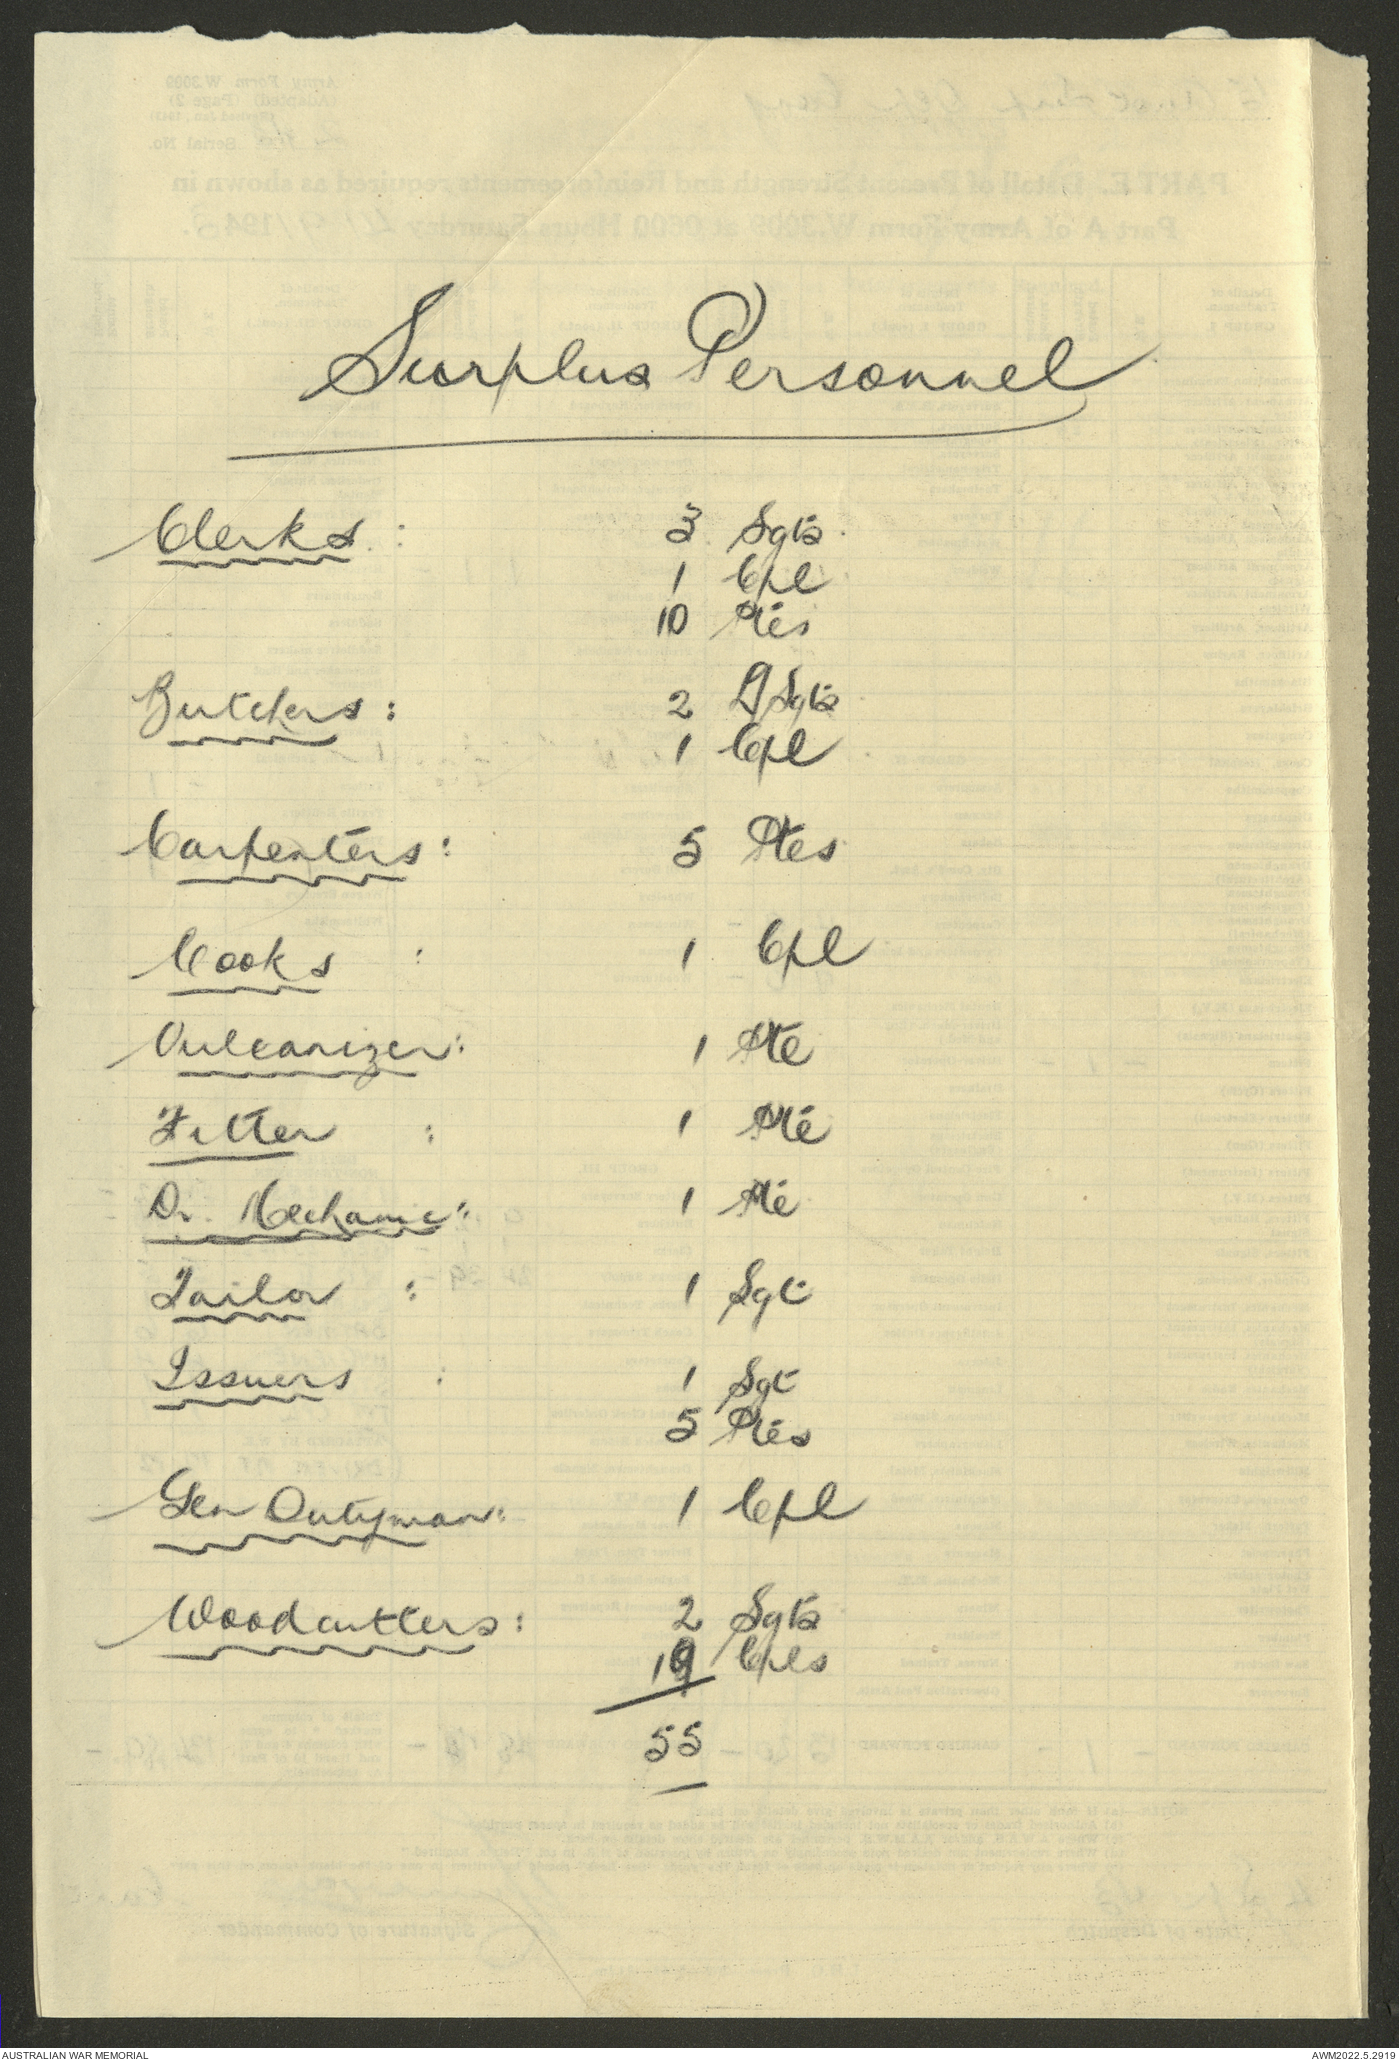 Surplus Personnel
Clerks : 3 Sgts
1 Cpl
10 Ptes
Butchers : 2 L/Sgts
1 Cpl
Carpenters : 5 Ptes
Cooks : 1 Cpl
Vulcanizer : 1 Pte
Fitter : 1 Pte
Dr. Mechanic : 1 Pte
Tailor : 1 Sgt
Issuers : 1 Sgt
5 Ptes
Gen Dutyman : 1 Cpl
Woodcutters : 2 Sgts
19 Cpls
55
AUSTRALIAN WAR MEMORIAL
AWM2022.5.2919